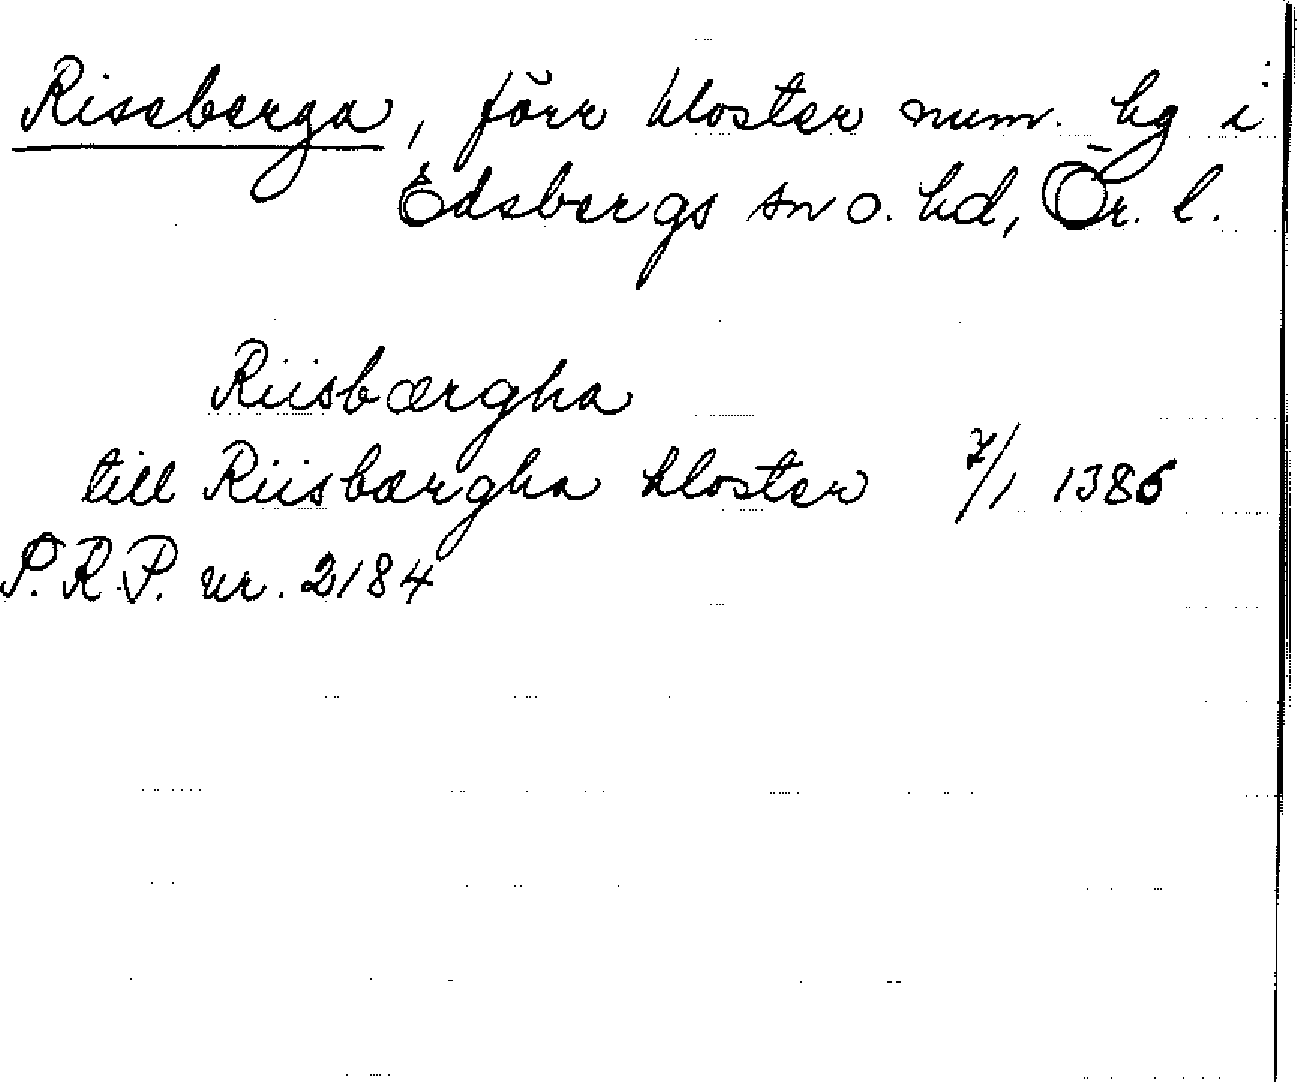 Riseberga, förr kloster num. hg i
Edsbergs sn o. hd, Ör. l.
Riisbærgha
till Riisbærgha kloster 7/1 1386
P.R.P. nr. 2184